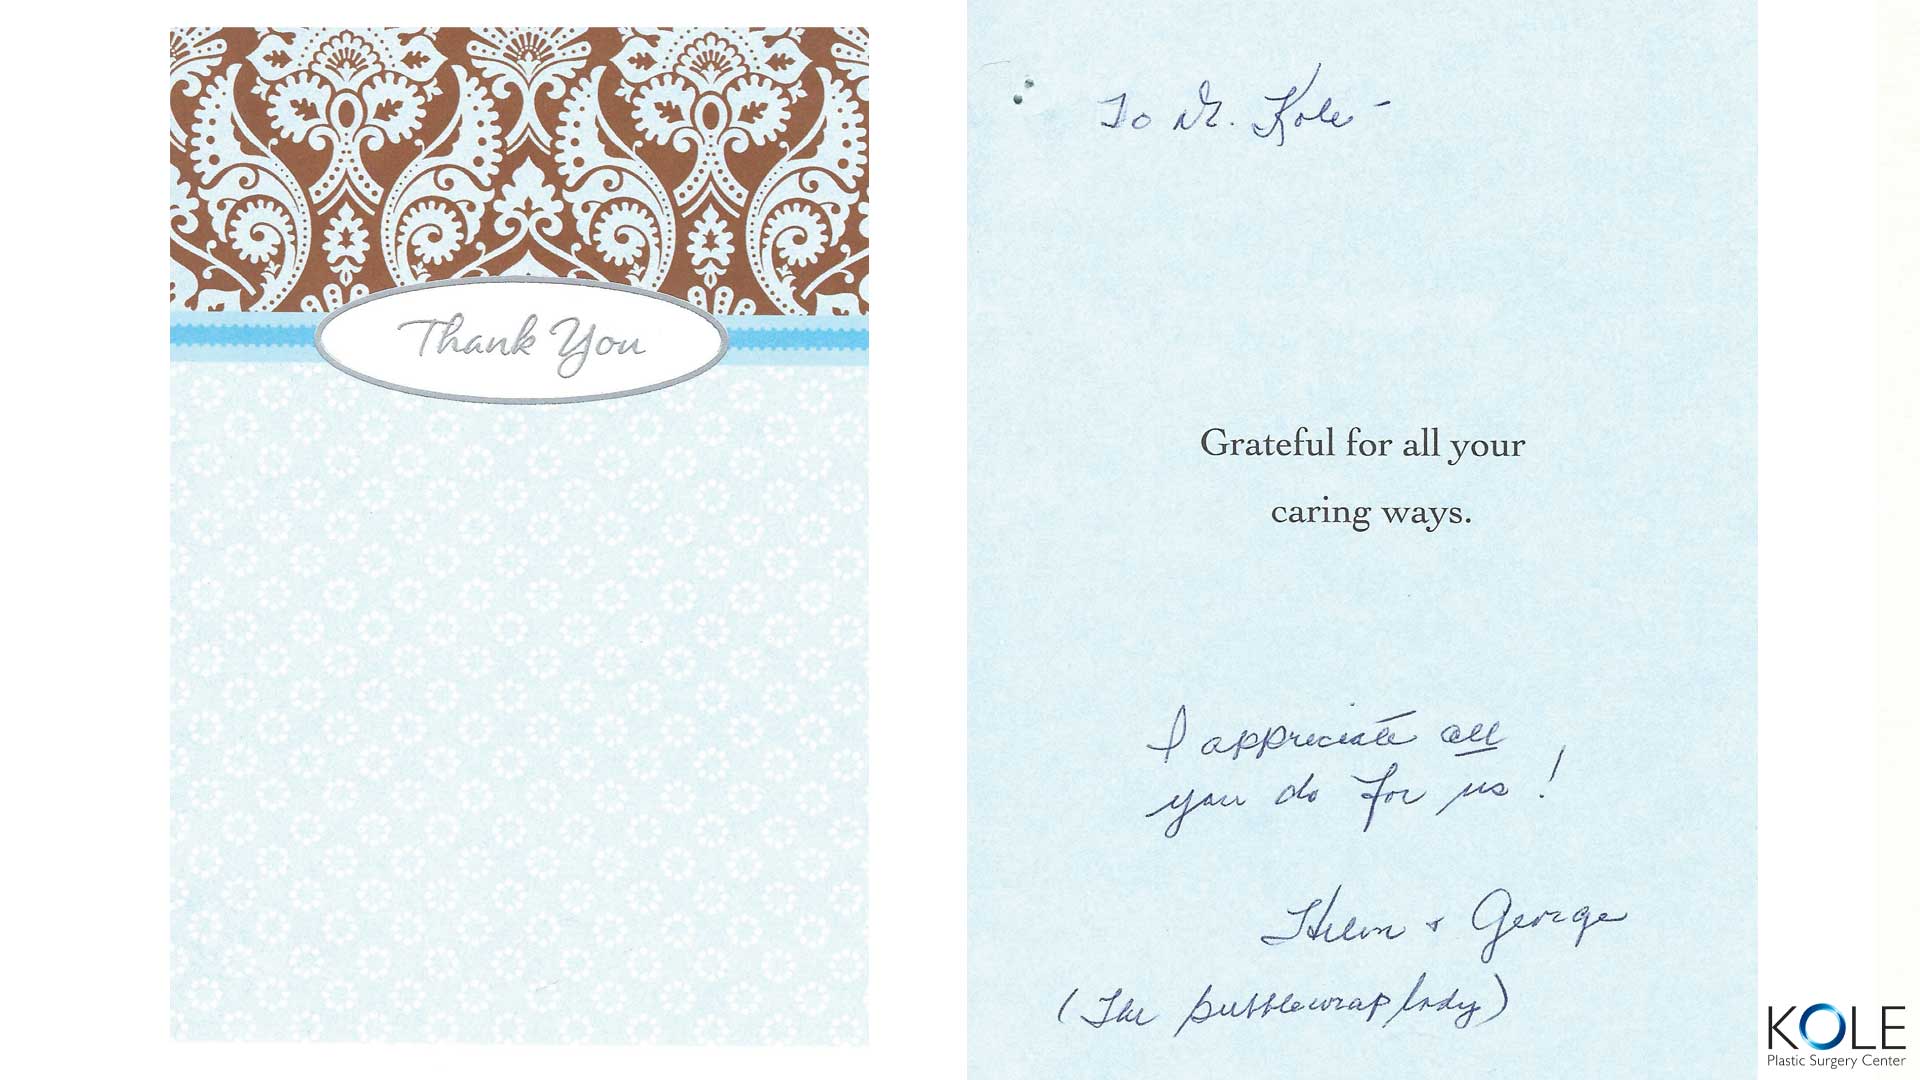 Thank You
To Dr. Kole -
Grateful for all your
caring ways.
I appreciate all
you do for us!
Helen + George
(The bubblewrap lady)
KOLE
Plastic Surgery Center